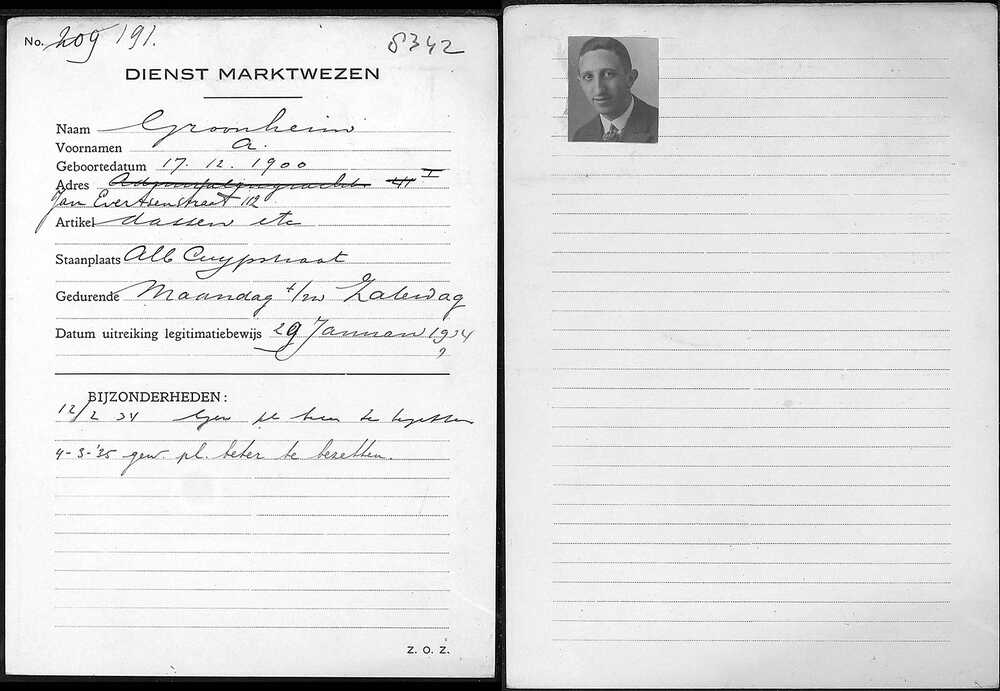 No. 209 191. 8342
DIENST MARKTWEZEN
Naam Groonheim
Voornamen A.
Geboortedatum 17. 12. 1900
Adres I
Jan Evertsenstraat 112
Artikel dassen etc
Staanplaats Alb Cuypstraat
Gedurende Maandag t/m Zaterdag
Datum uitreiking legitimatiebewijs 29 Januari 1934
BIJZONDERHEDEN:
12/2 34 Gew pl te
4-3-'35 gew. pl. beter te bezetten.
Z. O. Z.